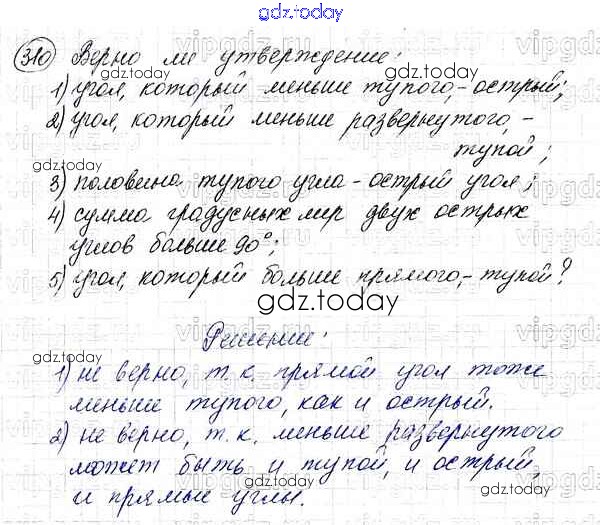 gdz.today
310 Верно ли утверждение:
1) угол, который меньше тупого, - острый;
2) угол, который меньше развернутого, -
тупой;
3) половина тупого угла - острый угол;
4) сумма градусных мер двух острых
углов больше 90°;
5) угол, который больше прямого, - тупой?
gdz.today
Решение:
1) не верно, т.к. прямой угол тоже
меньше тупого, как и острый.
2) не верно, т.к. меньше развернутого
может быть и тупой, и острый,
и прямые углы.